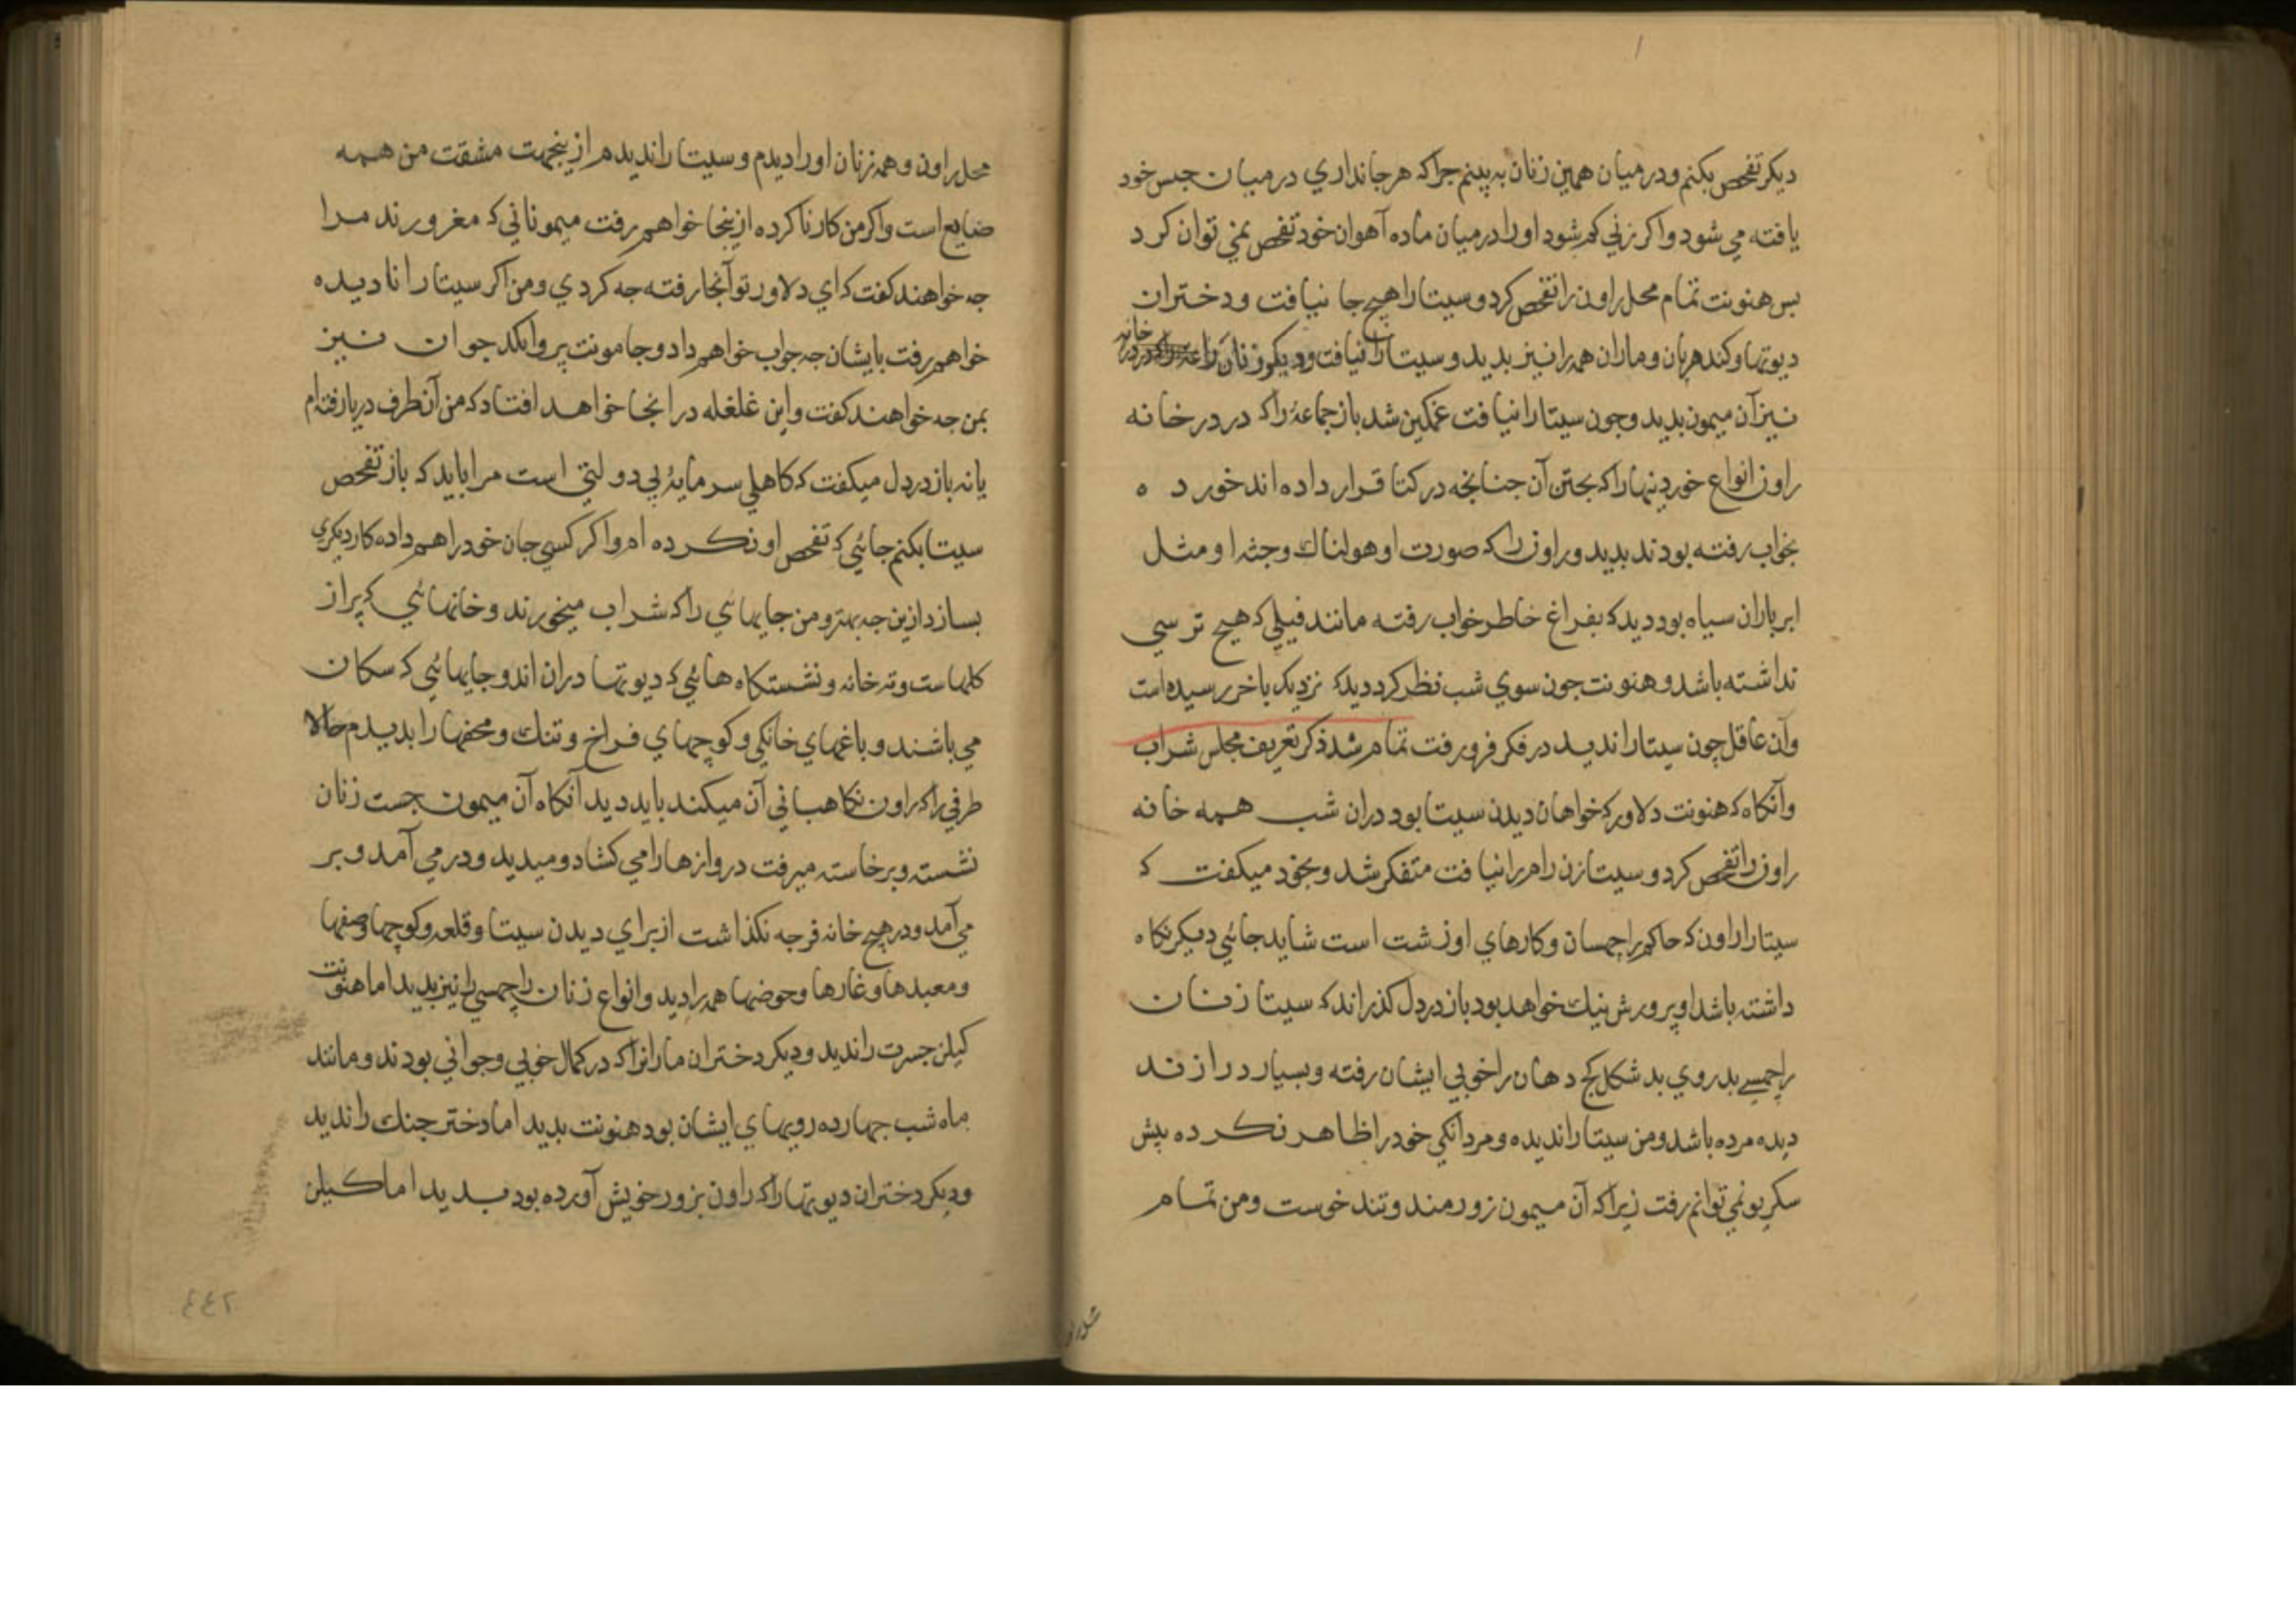 دیکر تفحص بکنم و در میان همین زنان به بینم جراکه هر جانداري در میان جنس خود
یافته مي شود و اکر زني کم شود او را در میان ماده آهوان خود تفحص نمي توان کرد
بس هنونت تمام محل راون را تفحص کرد و سیتا را هیج جا نیافت و دختران
دیوتها و کندهربان و ماران همه را نیز بدید و سیتا را نیافت و دیکر زنان را خانه
نیز آن میمون بدید و جون سیتا را نیافت غمکین شد باز جماعۀ را که در در خانه
راون انواع خوردنیها را که بختن آن جنانجه در کتا قرار داده اند خورده
بخواب رفته بودند بدید و راون را که صورت او هولناك و جثۀ او مثل
ابر باران سیاه بود دید که بفراغ خاطر خواب رفته مانند فیلي که هیج ترسي
نداشته باشد و هنونت جون سوي شب نظر کرد دید که نزدیك باخر رسیده است
و آن عاقل چون سیتا را ندید در فکر فرو رفت تمام شد ذکر تعریف مجلس شراب
و آنکاه که هنونت دلاور که خواهان دیدن سیتا بود دران شب همه خانه
راون را تفحص کرد و سیتا زن رام را نیافت متفکر شد و بخود میکفت که
سیتا را راون که حاکم راچهسان و کارهاي او زشت است شاید جائي دیکر نکاه
داشته باشد او پرورش نیك خواهد بود باز در دل کذراند که سیتا زنان
راچهسي بد روي بد شکل کج دهان را خوبي ایشان رفته و بسیار دراز قد
دیده مرده باشد و من سیتا را ندیده و مردانکي خود را ظاهر نکرده پیش
سکریو نمي توانم رفت زیرا که آن میمون زورمند و تند خوست و من تمام
محل راون و همه زنان او را دیدم و سیتا را ندیدم ازینجهت مشقت من همه
ضایع است و اکر من کار ناکرده ازینجا خواهم رفت میموناني که مغرورند مرا
جه خواهند کفت که اي دلاور تو آنجا رفته جه کردي و من اکر سیتا را نا دیده
خواهم رفت بایشان جه جواب خواهم داد و جامونت پیر و انکد جوان نیز
بمن جه خواهند کفت و این غلغله در انجا خواهد افتاد که من آنطرف دریا رفته ام
یا نه باز در دل میکفت که کاهلي سرمایۀ بي دولتي است مرا باید که باز تفحص
سیتا بکنم جائي که تفحص او نکرده ام و اکر کسي جان خود را هم داده کار دیکري
بسازد ازین جه بهتر و من جایهائي را که شراب میخورند و خانهائي که پر از
کلهاست و ته خانه و نشستکاه هائي که دیوتها دران اند و جایهائي که سکان
مي باشند و باغهاي خانکي و کوچهاي فراخ و تنك و محفها را بدیدم حالا
طرفي را که راون نکاهباني آن میکند باید دید آنکاه آن میمون جست زنان
نشسته و برخاسته میرفت دروازها را مي کشاد و میدید و در مي آمد و بر
مي آمد و در هیج خانه فرجه نکذاشت از براي دیدن سیتا و قلعه و کوچها و صفها
و معبدها و غارها و حوضها همه را دید و انواع زنان راچهسي را نیز بدید اما هنونت
کیلن جسرت را ندید و دیکر دختران ماران را که در کمال خوبي و جواني بودند و مانند
ماه شب جهارده رویهاي ایشان بود هنونت بدید اما دختر جنك را ندید
و دیکر دختران دیوتها را که راون بزور خویش آورده بود بدید اما کیلن
محل راون
٤٤٢